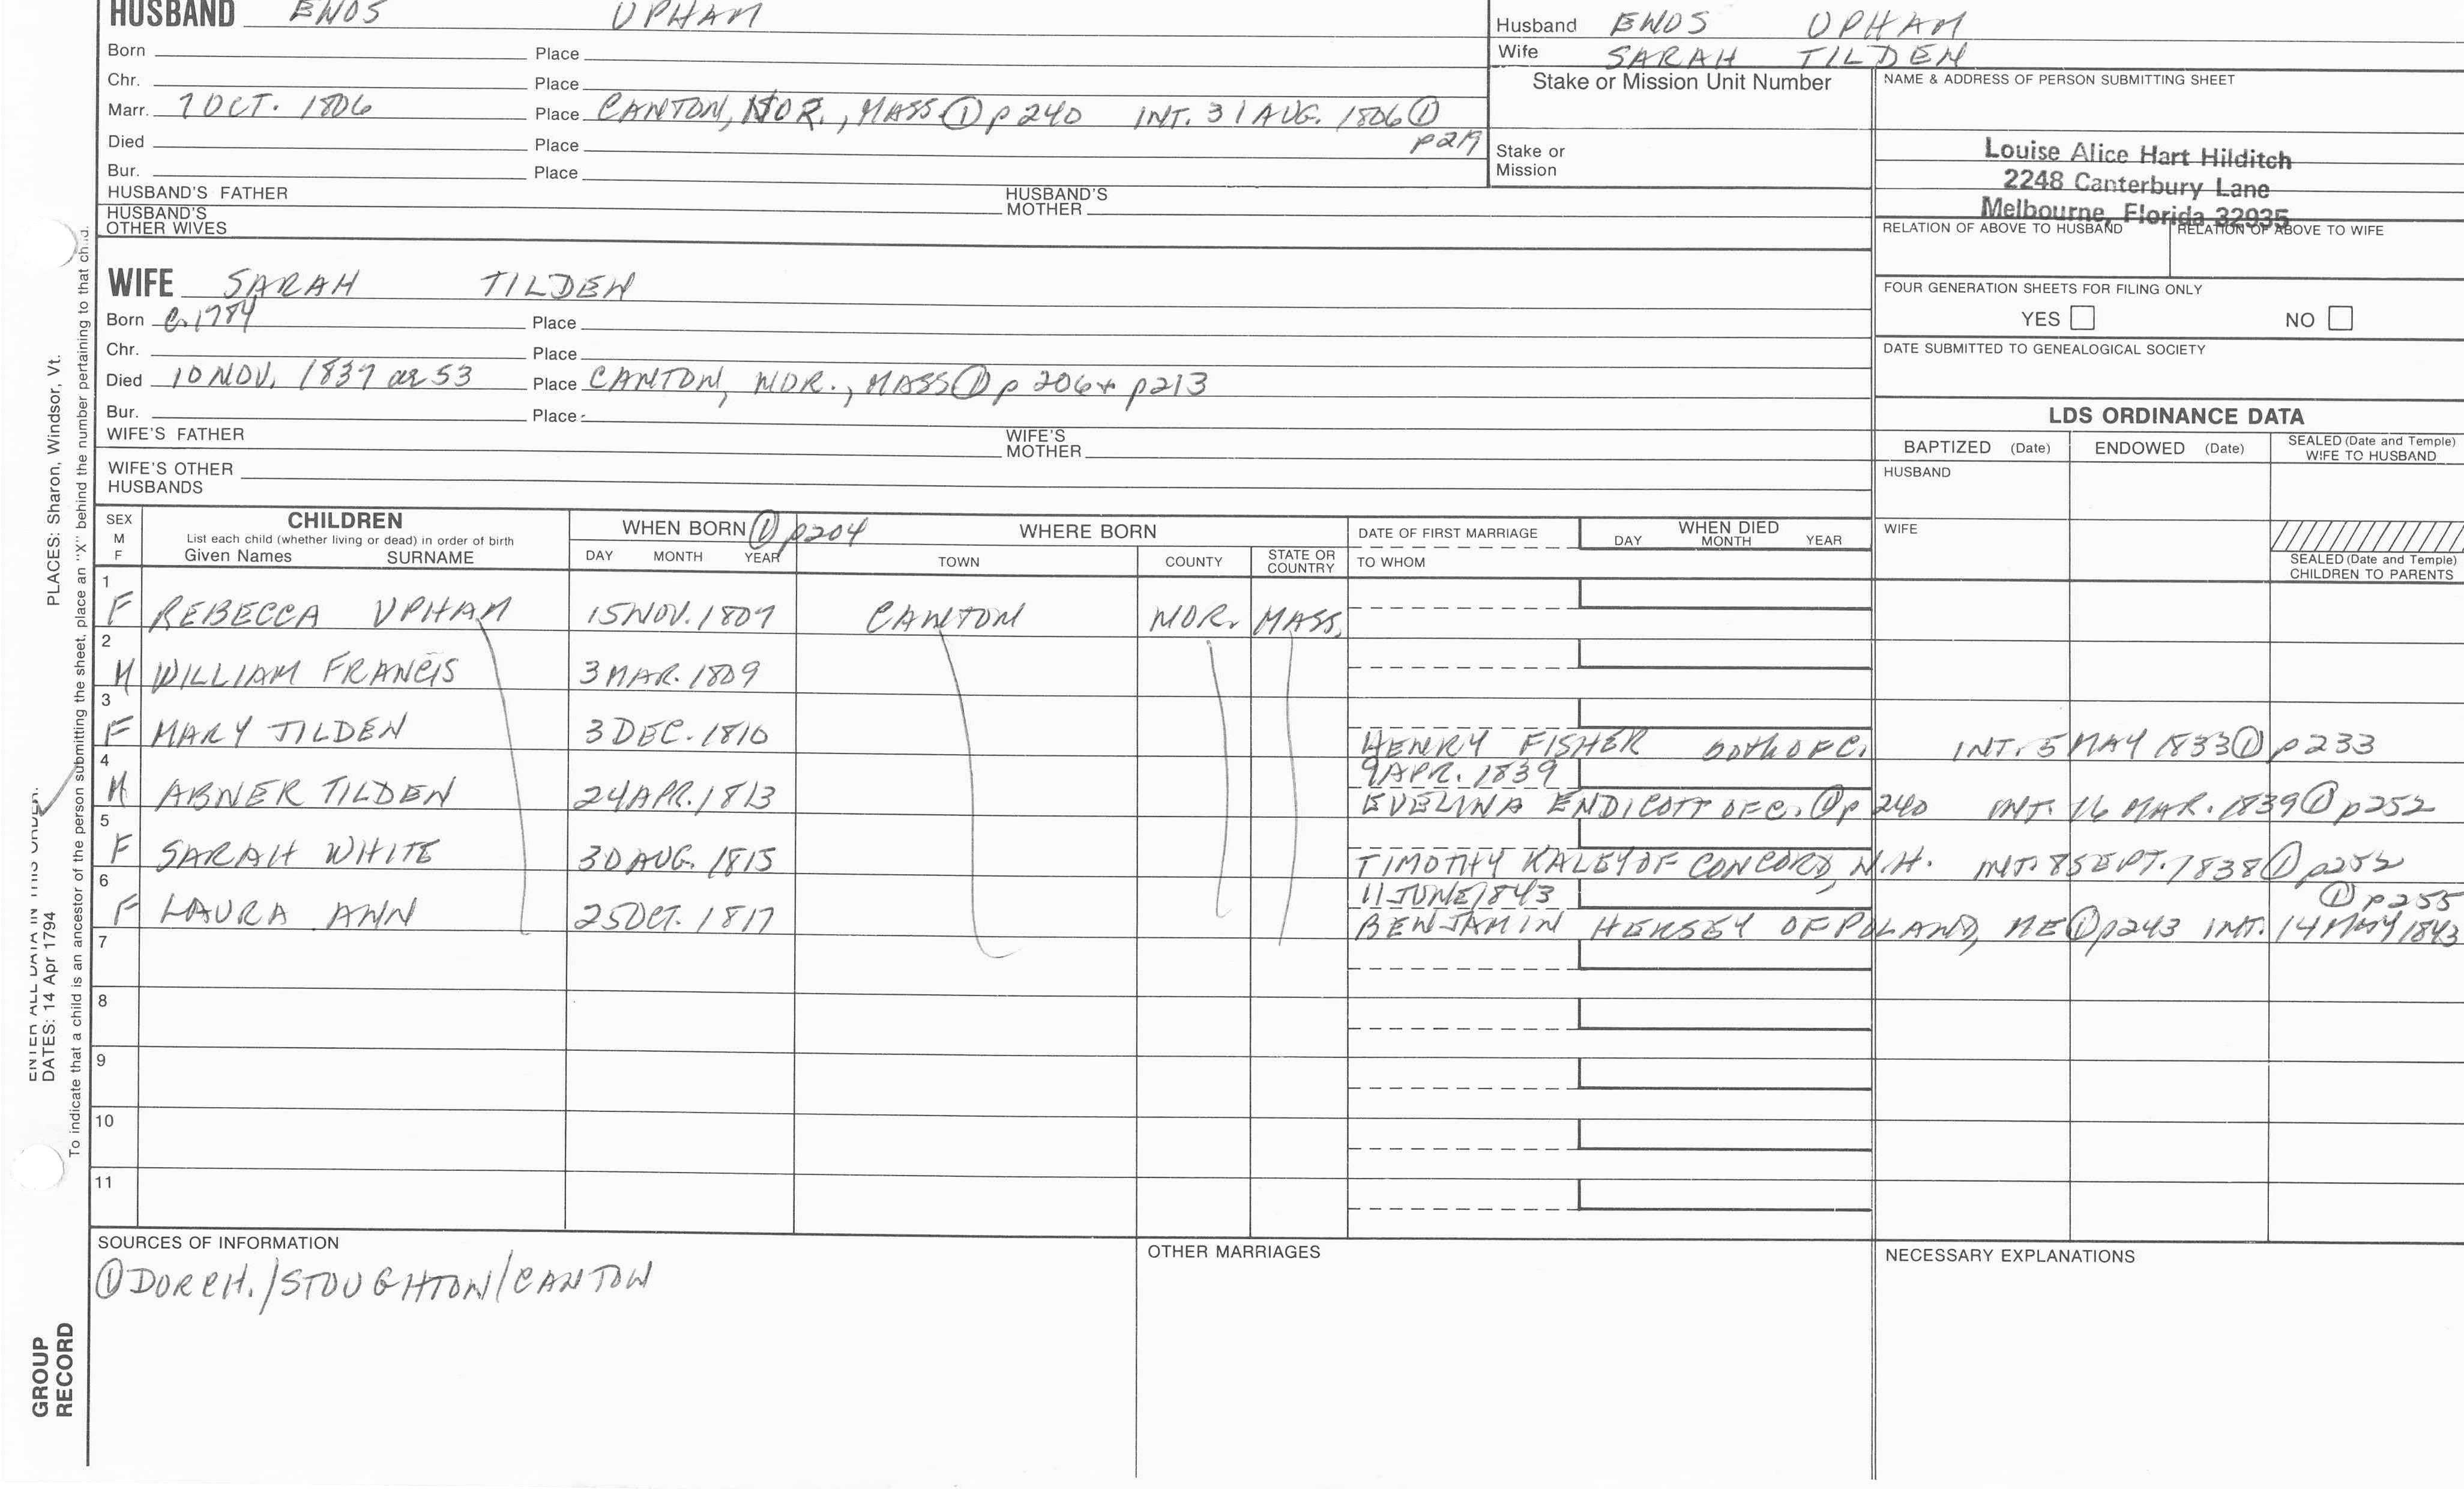 HUSBAND ENOS UPHAM
Husband ENOS UPHAM
Wife SARAH TILDEN
Born Place
Chr. Place
Marr. 7 OCT. 1806 Place CANTON, NOR., MASS ① p240 INT. 31 AUG. 1806 ①
p219
Died Place
Bur. Place
HUSBAND'S FATHER HUSBAND'S MOTHER
HUSBAND'S OTHER WIVES
Stake or Mission Unit Number
Stake or Mission
NAME & ADDRESS OF PERSON SUBMITTING SHEET
Louise Alice Hart Hilditch
2248 Canterbury Lane
Melbourne, Florida 32935
RELATION OF ABOVE TO HUSBAND RELATION OF ABOVE TO WIFE
FOUR GENERATION SHEETS FOR FILING ONLY
YES NO
DATE SUBMITTED TO GENEALOGICAL SOCIETY
WIFE SARAH TILDEN
Born c.1784 Place
Chr. Place
Died 10 NOV. 1837 ae 53 Place CANTON, NOR., MASS ① p 206 + p213
Bur. Place
WIFE'S FATHER WIFE'S MOTHER
WIFE'S OTHER HUSBANDS
LDS ORDINANCE DATA
BAPTIZED (Date) ENDOWED (Date) SEALED (Date and Temple) WIFE TO HUSBAND
HUSBAND
WIFE
SEALED (Date and Temple) CHILDREN TO PARENTS
SEX M F
CHILDREN
List each child (whether living or dead) in order of birth
Given Names SURNAME
WHEN BORN ① p204
DAY MONTH YEAR
WHERE BORN
TOWN COUNTY STATE OR COUNTRY
DATE OF FIRST MARRIAGE
TO WHOM
WHEN DIED
DAY MONTH YEAR
1
F REBECCA UPHAM 15 NOV. 1807 CANTON NOR. MASS.
2
M WILLIAM FRANCIS 3 MAR. 1809
3
F MARY TILDEN 3 DEC. 1810 HENRY FISHER both OF C. INT. 5 MAY 1833 ① p233
4
9 APR. 1839
M ABNER TILDEN 24 APR. 1813 EVELINA ENDICOTT OF C. ① p 240 INT. 16 MAR. 1839 ① p252
5
F SARAH WHITE 30 AUG. 1815 TIMOTHY KALEY OF CONCORD, N.H. INT. 8 SEPT. 1838 ① p252
6
11 JUNE 1843 ① p255
F LAURA ANN 25 OCT. 1817 BENJAMIN HERSEY OF POLAND, ME ① p243 INT. 14 MAY 1843
7
8
9
10
11
SOURCES OF INFORMATION
① DORCH./STOUGHTON/CANTON
OTHER MARRIAGES
NECESSARY EXPLANATIONS
PLACES: Sharon, Windsor, Vt.
DATES: 14 Apr 1794
To indicate that a child is an ancestor of the person submitting the sheet, place an "X" behind the number pertaining to that child.
GROUP
RECORD